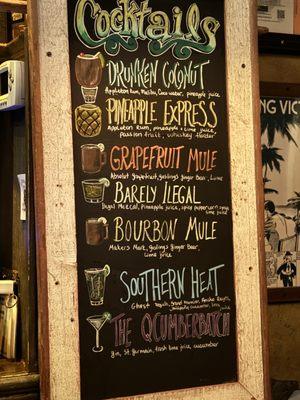 Cocktails
DRUNKEN COCONUT
Appleton Rum, Malibu, Coco water, pineapple juice
PINEAPPLE EXPRESS
Appleton Rum, pineapple + lime juice,
passion fruit, whiskey floater
GRAPEFRUIT MULE
Absolut grapefruit, goslings ginger beer, Lime
BARELY ILEGAL
Ilegal Mezcal, Pineapple juice, spicy peppercorn syrup
lime juice
BOURBON MULE
Makers Mark, goslings ginger beer,
lime juice
SOUTHERN HEAT
Ghost tequila, Grand Marnier,
lime juice
THE QCUMBERBATCH
gin, St. Germain, fresh lime juice, cucumber
NG VIC